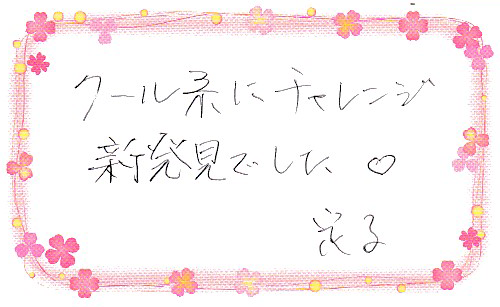 クール系にチャレンジ
新発見でした、♡